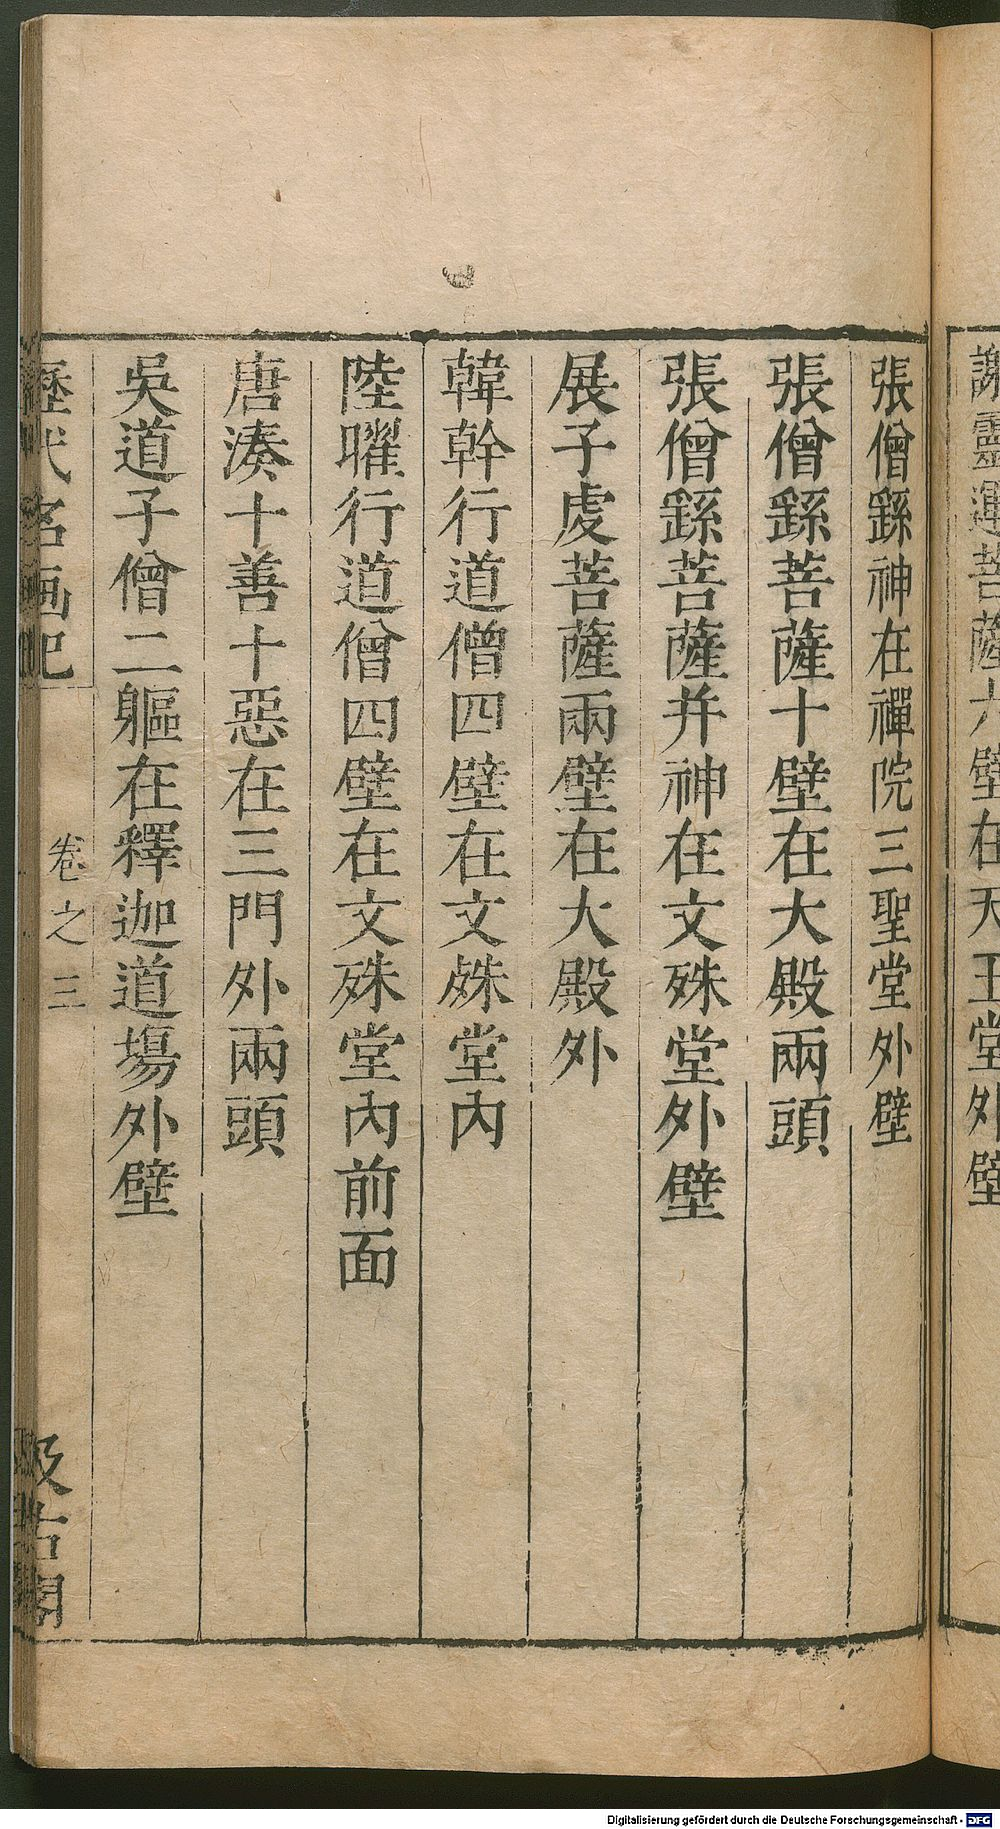 謝靈運菩薩六壁在天王堂外壁
張僧繇神在禪院三聖堂外壁
張僧繇菩薩十壁在大殿兩頭
張僧繇菩薩并神在文殊堂外壁
展子虔菩薩兩壁在大殿外
韓幹行道僧四壁在文殊堂內
陸曜行道僧四壁在文殊堂內前面
唐湊十善十惡在三門外兩頭
吳道子僧二軀在釋迦道場外壁
歷代名画記 卷之三 汲古閣
Digitalisierung gefördert durch die Deutsche Forschungsgemeinschaft - DFG